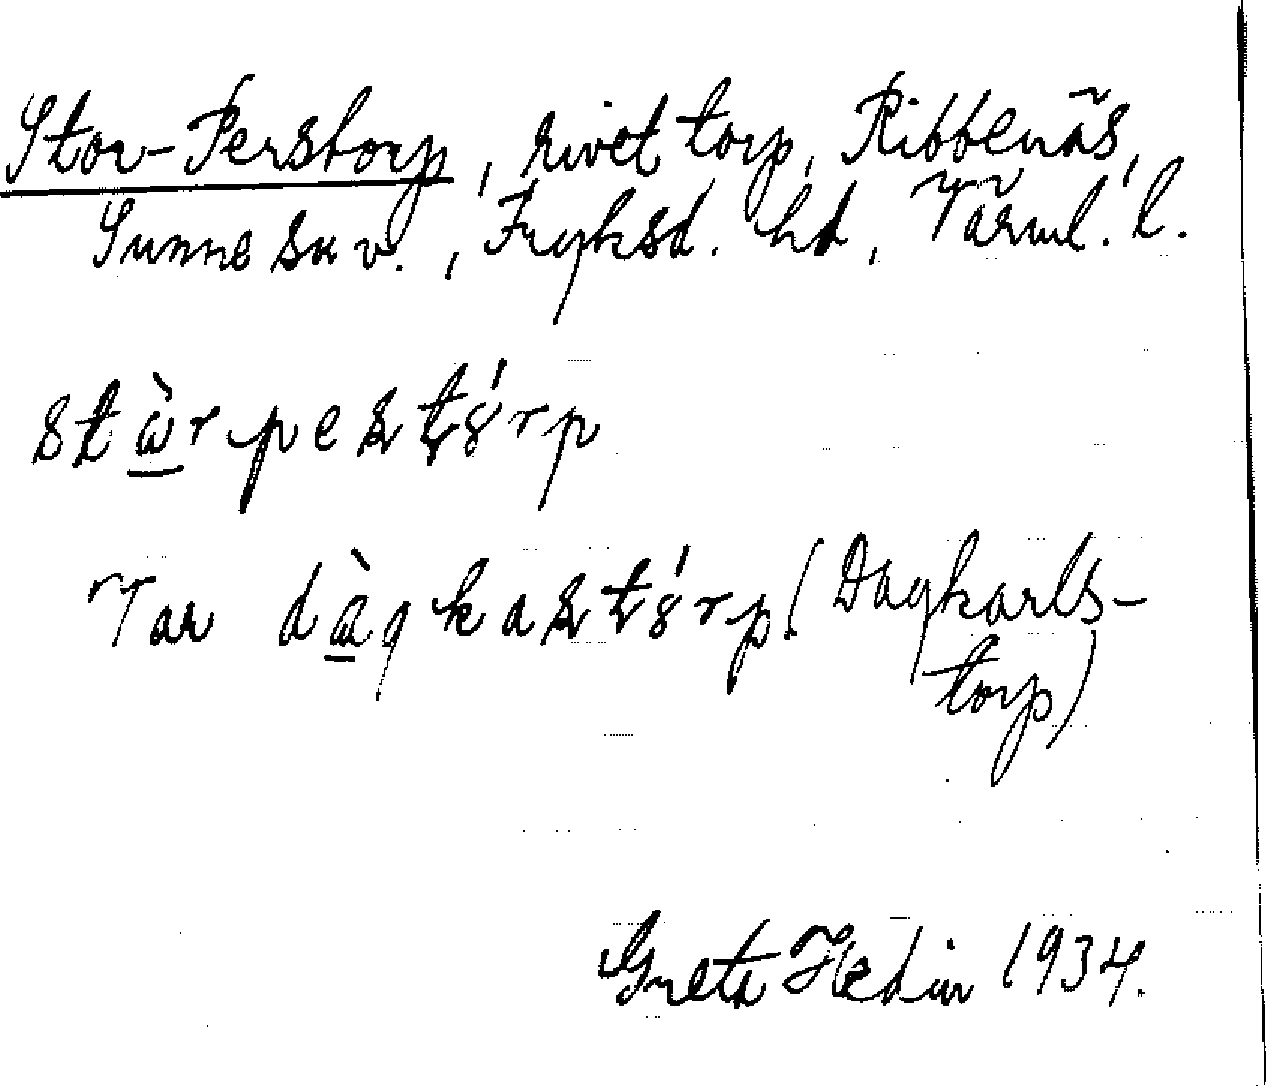 Stor-Perstorp, rivet torp, Ribbenäs,
Sunne sn v., Fryksd. hd, Värml. l.
stὼ̲rpeʂʈɤ́rp
Tar dà̲gkaʂʈɤ́rp (Dagkarls-
torp)
Greta Hedin 1934.